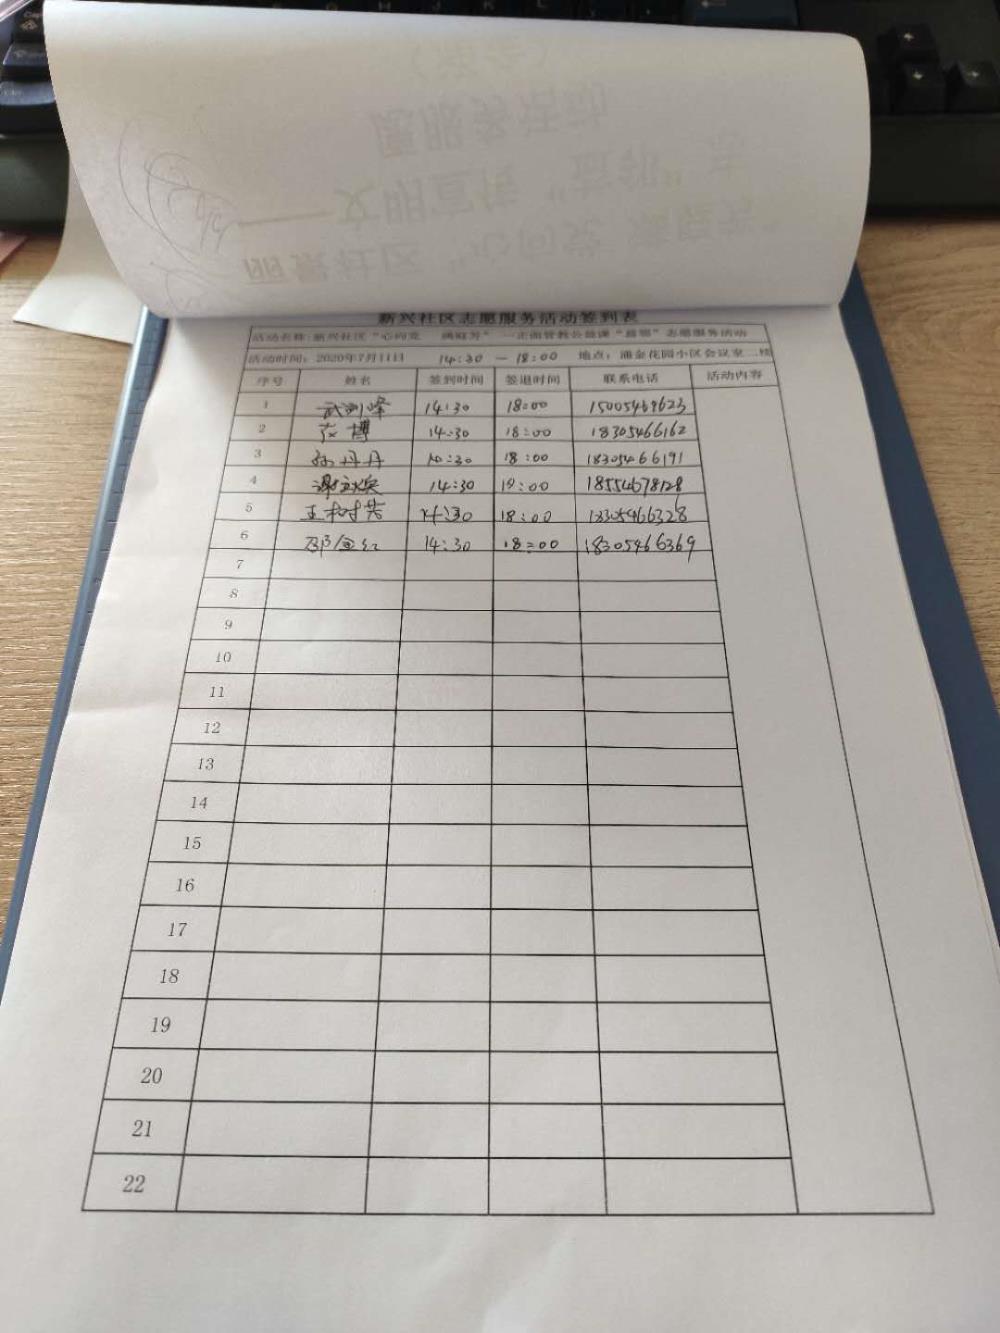 新兴社区志愿服务活动签到表
活动名称：新兴社区“心向党 满庭芳”—正面管教公益课“益邻”志愿服务活动
活动时间：2020年7月11日 14:30 — 18:00 地点：浦金花园小区会议室二楼
序号 姓名 签到时间 签退时间 联系电话 活动内容
1 14:30 18:00 15005469623
2 14:30 18:00 18305466162
3 孙丹丹 14:30 18:00 18305466191
4 14:30 18:00 18554678128
5 王树芳 14:30 18:00 18305466328
6 邵金红 14:30 18:00 18305466369
7
8
9
10
11
12
13
14
15
16
17
18
19
20
21
22